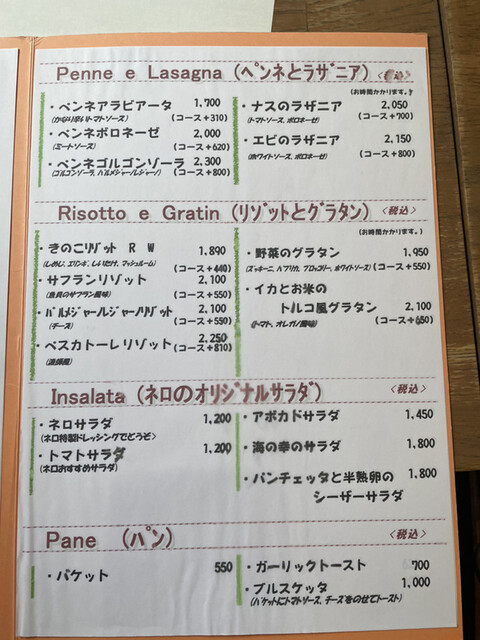 Penne e Lasagna (ペンネとラザニア) <税込>
(お時間かかります。)
・ペンネアラビアータ 1,700
(かなり辛いトマトソース) (コース+310)
・ペンネボロネーゼ 2,000
(ミートソース) (コース+620)
・ペンネゴルゴンゾーラ 2,300
(ゴルゴンゾーラ、パルメジャーレジャーノ) (コース+800)
・ナスのラザニア 2,050
(トマトソース、ボロネーゼ) (コース+700)
・エビのラザニア 2,150
(ホワイトソース、ボロネーゼ) (コース+800)
Risotto e Gratin (リゾットとグラタン) <税込>
(お時間かかります。)
・きのこリゾット R W 1,890
(しめじ、エリンギ、しいたけ、マッシュルーム) (コース+440)
・サフランリゾット 2,100
(魚貝のサフラン風味) (コース+550)
・パルメジャーノレジャーノリゾット 2,100
(チーズ) (コース+550)
・ペスカトーレリゾット 2,250
(漁師風) (コース+810)
・野菜のグラタン 1,950
(ズッキーニ、パプリカ、ブロッコリー、ホワイトソース) (コース+550)
・イカとお米の
トルコ風グラタン 2,100
(トマト、オレガノ風味) (コース+650)
Insalata (ネロのオリジナルサラダ) <税込>
・ネロサラダ 1,200
(ネロ特製ドレッシングでどうぞ)
・トマトサラダ 1,200
(ネロおすすめサラダ)
・アボカドサラダ 1,450
・海の幸のサラダ 1,800
・パンチェッタと半熟卵の 1,800
シーザーサラダ
Pane (パン) <税込>
・バケット 550
・ガーリックトースト 700
・ブルスケッタ 1,000
(バケットにトマトソース、チーズをのせてトースト)